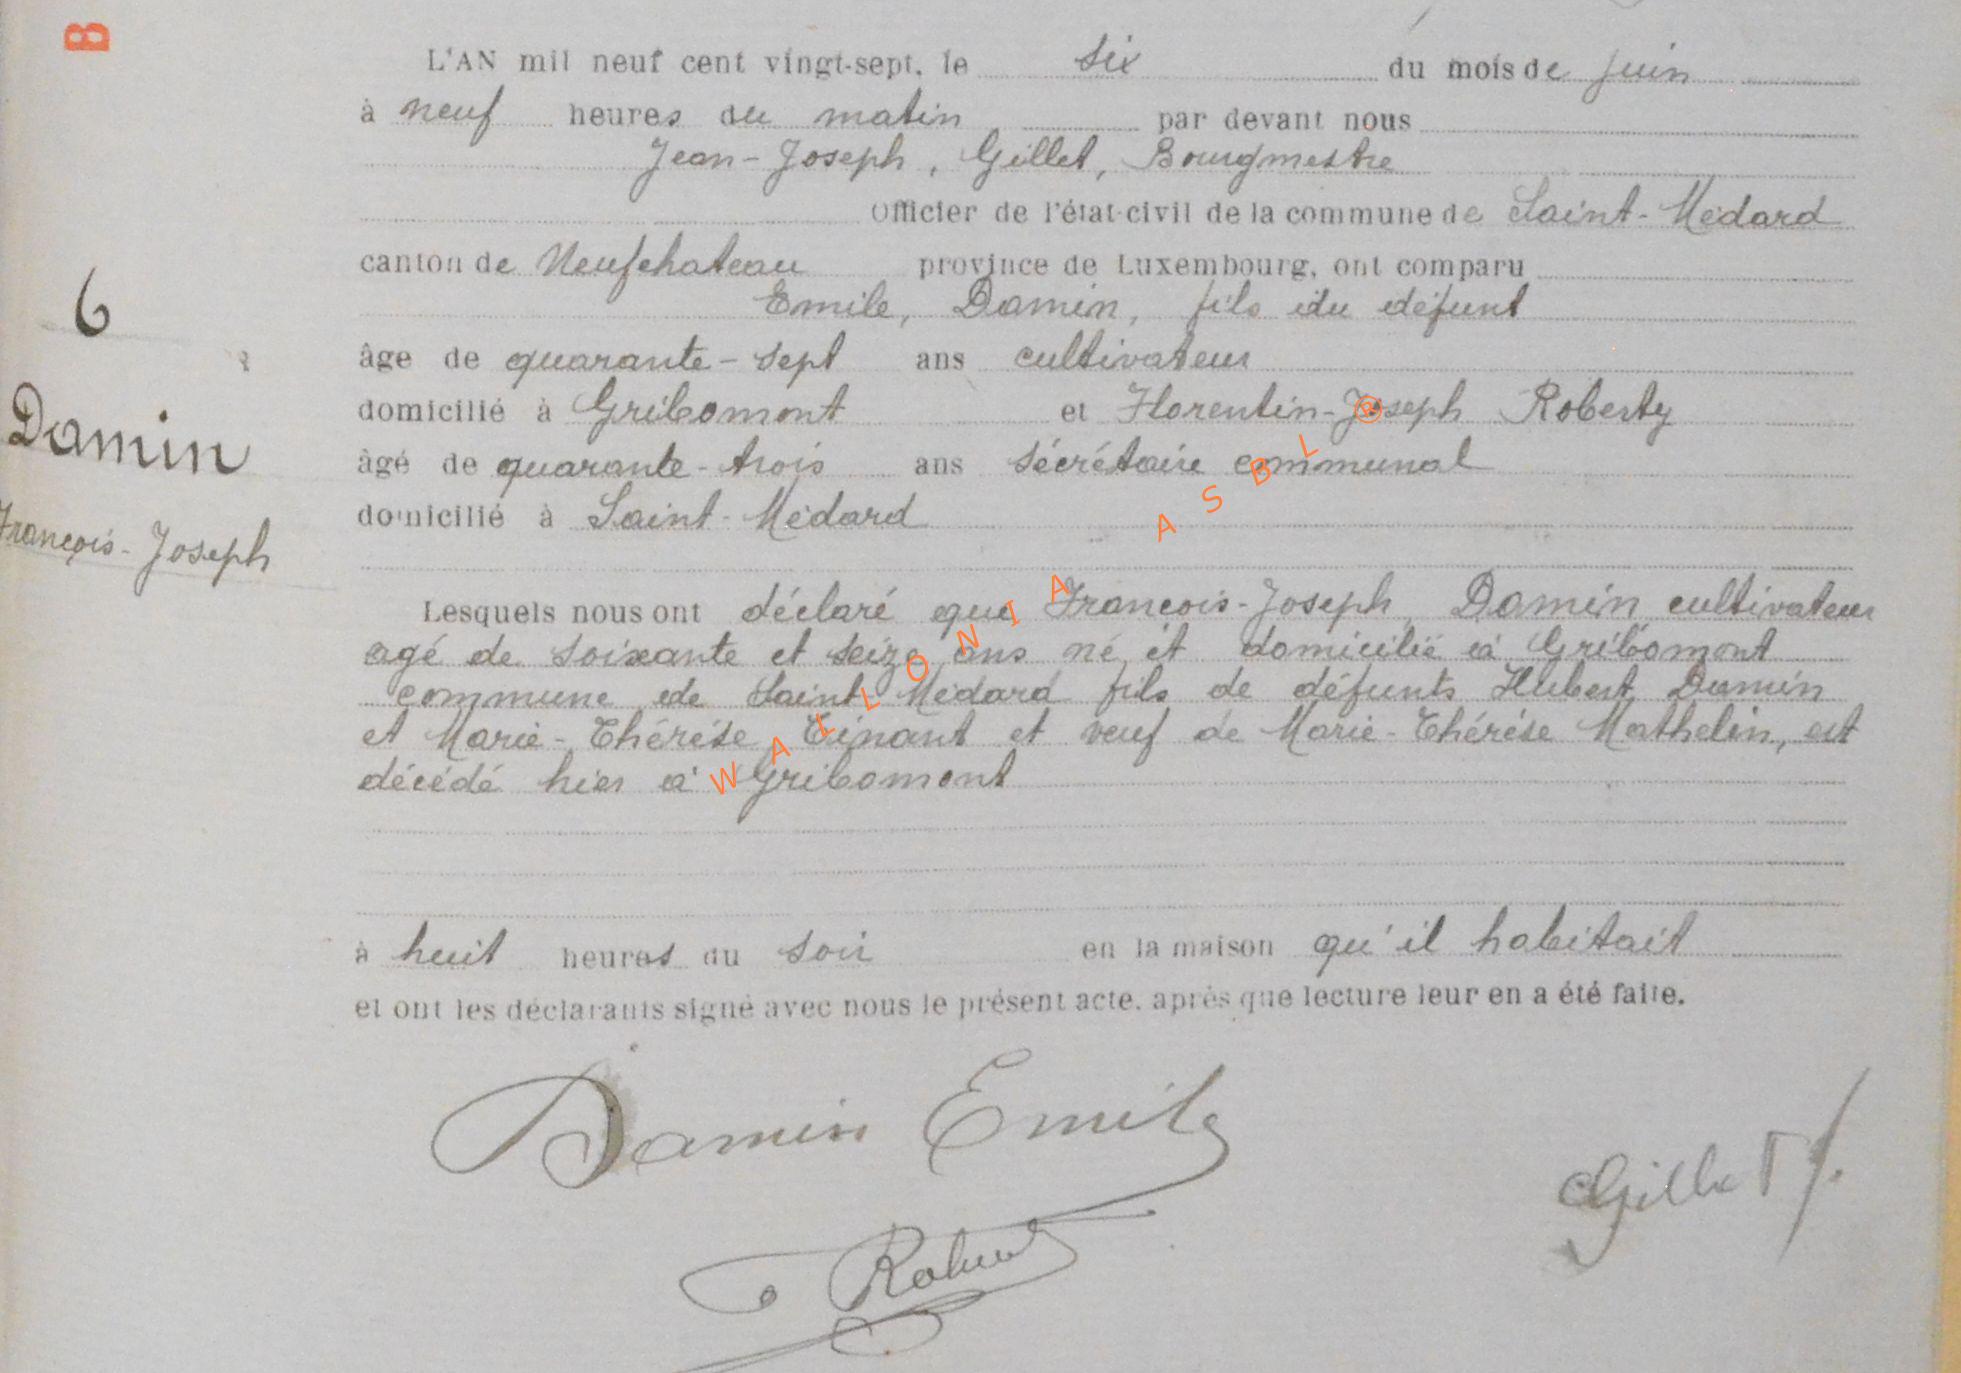 B
L'AN mil neuf cent vingt-sept, le six du mois de juin
à neuf heures du matin par devant nous
Jean-Joseph, Gillet, Bourgmestre
Officier de l'état-civil de la commune de Saint-Médard
canton de Neufchateau province de Luxembourg, ont comparu
Emile, Damin, fils du défunt
âge de quarante-sept ans cultivateur
domicilié à Gribomont et Florentin-Joseph Roberty
âgé de quarante-trois ans sécrétaire communal
domicilié à Saint-Médard
6
Damin
François-Joseph
Lesquels nous ont déclaré que François-Joseph, Damin cultivateur
agé de soixante et seize ans né et domicilié à Gribomont
commune de Saint-Médard fils de défunts Hubert Damin
et Marie-Thérése Tinant et veuf de Marie-Thérése Mathelin, est
décédé hier à Gribomont
à huit heures du soir en la maison qu'il habitait
et ont les déclarants signé avec nous le présent acte, après que lecture leur en a été faite.
Damin Emile
Gillet J.
WALLONIA ASBL ®